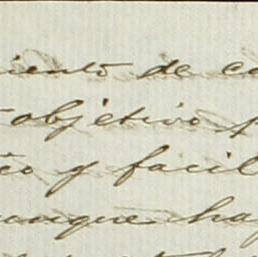 miento de co
objetivo p
co y facil
aunque hay